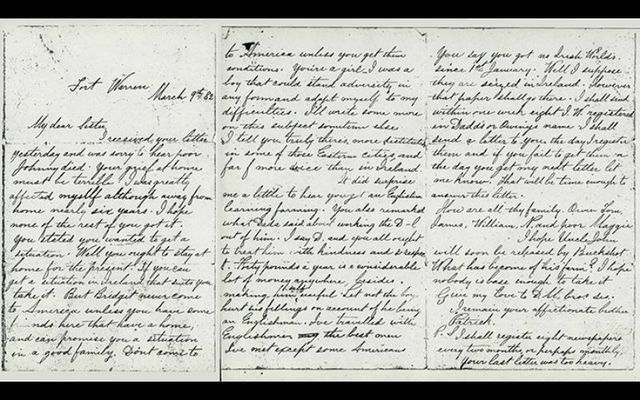 Fort Warren
March 9th 82
My dear Sister
I received your letter
yesterday and was sorry to hear poor
Johnny died. Your grief at home
must be terrible. I was greatly
affected myself although away from
home nearly six years. I hope
none of the rest of you got it.
You stated you wanted to get a
situation. Well you ought to stay at
home for the present. If you can
get a situation in Ireland that suits you
take it. But Bridget never come
to America unless you have some
friends here that have a home,
and can promise you a situation
in a good family. Dont come to
to America unless you get them
conditions. You're a girl I was a
boy that could stand adversity in
any form and adapt myself to my
difficulties. I'll write some more
on this subject sometime else
I tell you truly there's more destitute
in some of those Eastern Cities, and
far more vice than in Ireland.
It did surprise
me a little to hear you got an Englishman
learning farming. You also remarked
what Dada said about working the D-l
out of him. I say D. and you all ought
to treat him with kindness and respect
Forty pounds a year is a considerable
lot of money anywhere, besides
making him useful. Let not the boy
hurt his feelings on account of he being
an Englishman. I've travelled with
Englishmen the best men
I've met except some Americans
You say you got no Irish Worlds
since 1st January. Well I suppose
they are seized in Ireland. However
that paper shall go there. I shall send
within one week eight I.W. registered
in Dadd's or Owney's name I shall
send a letter to you the day I register
them and if you fail to get them on
the day you get my next letter let
me know. That will be time enough to
answer this letter.
How are all thy family. Owen Tom,
James, William, N. and poor Maggie
I hope Uncle John
will soon be released by Buckshot
What has become of his farm? I hope
nobody is base enough to take it
Give my love to D.M. bros ses.
I remain your affectionate brother
Patrick.
P. I shall register eight newspapers
every two months, or perhaps monthly.
Your last letter was too heavy.